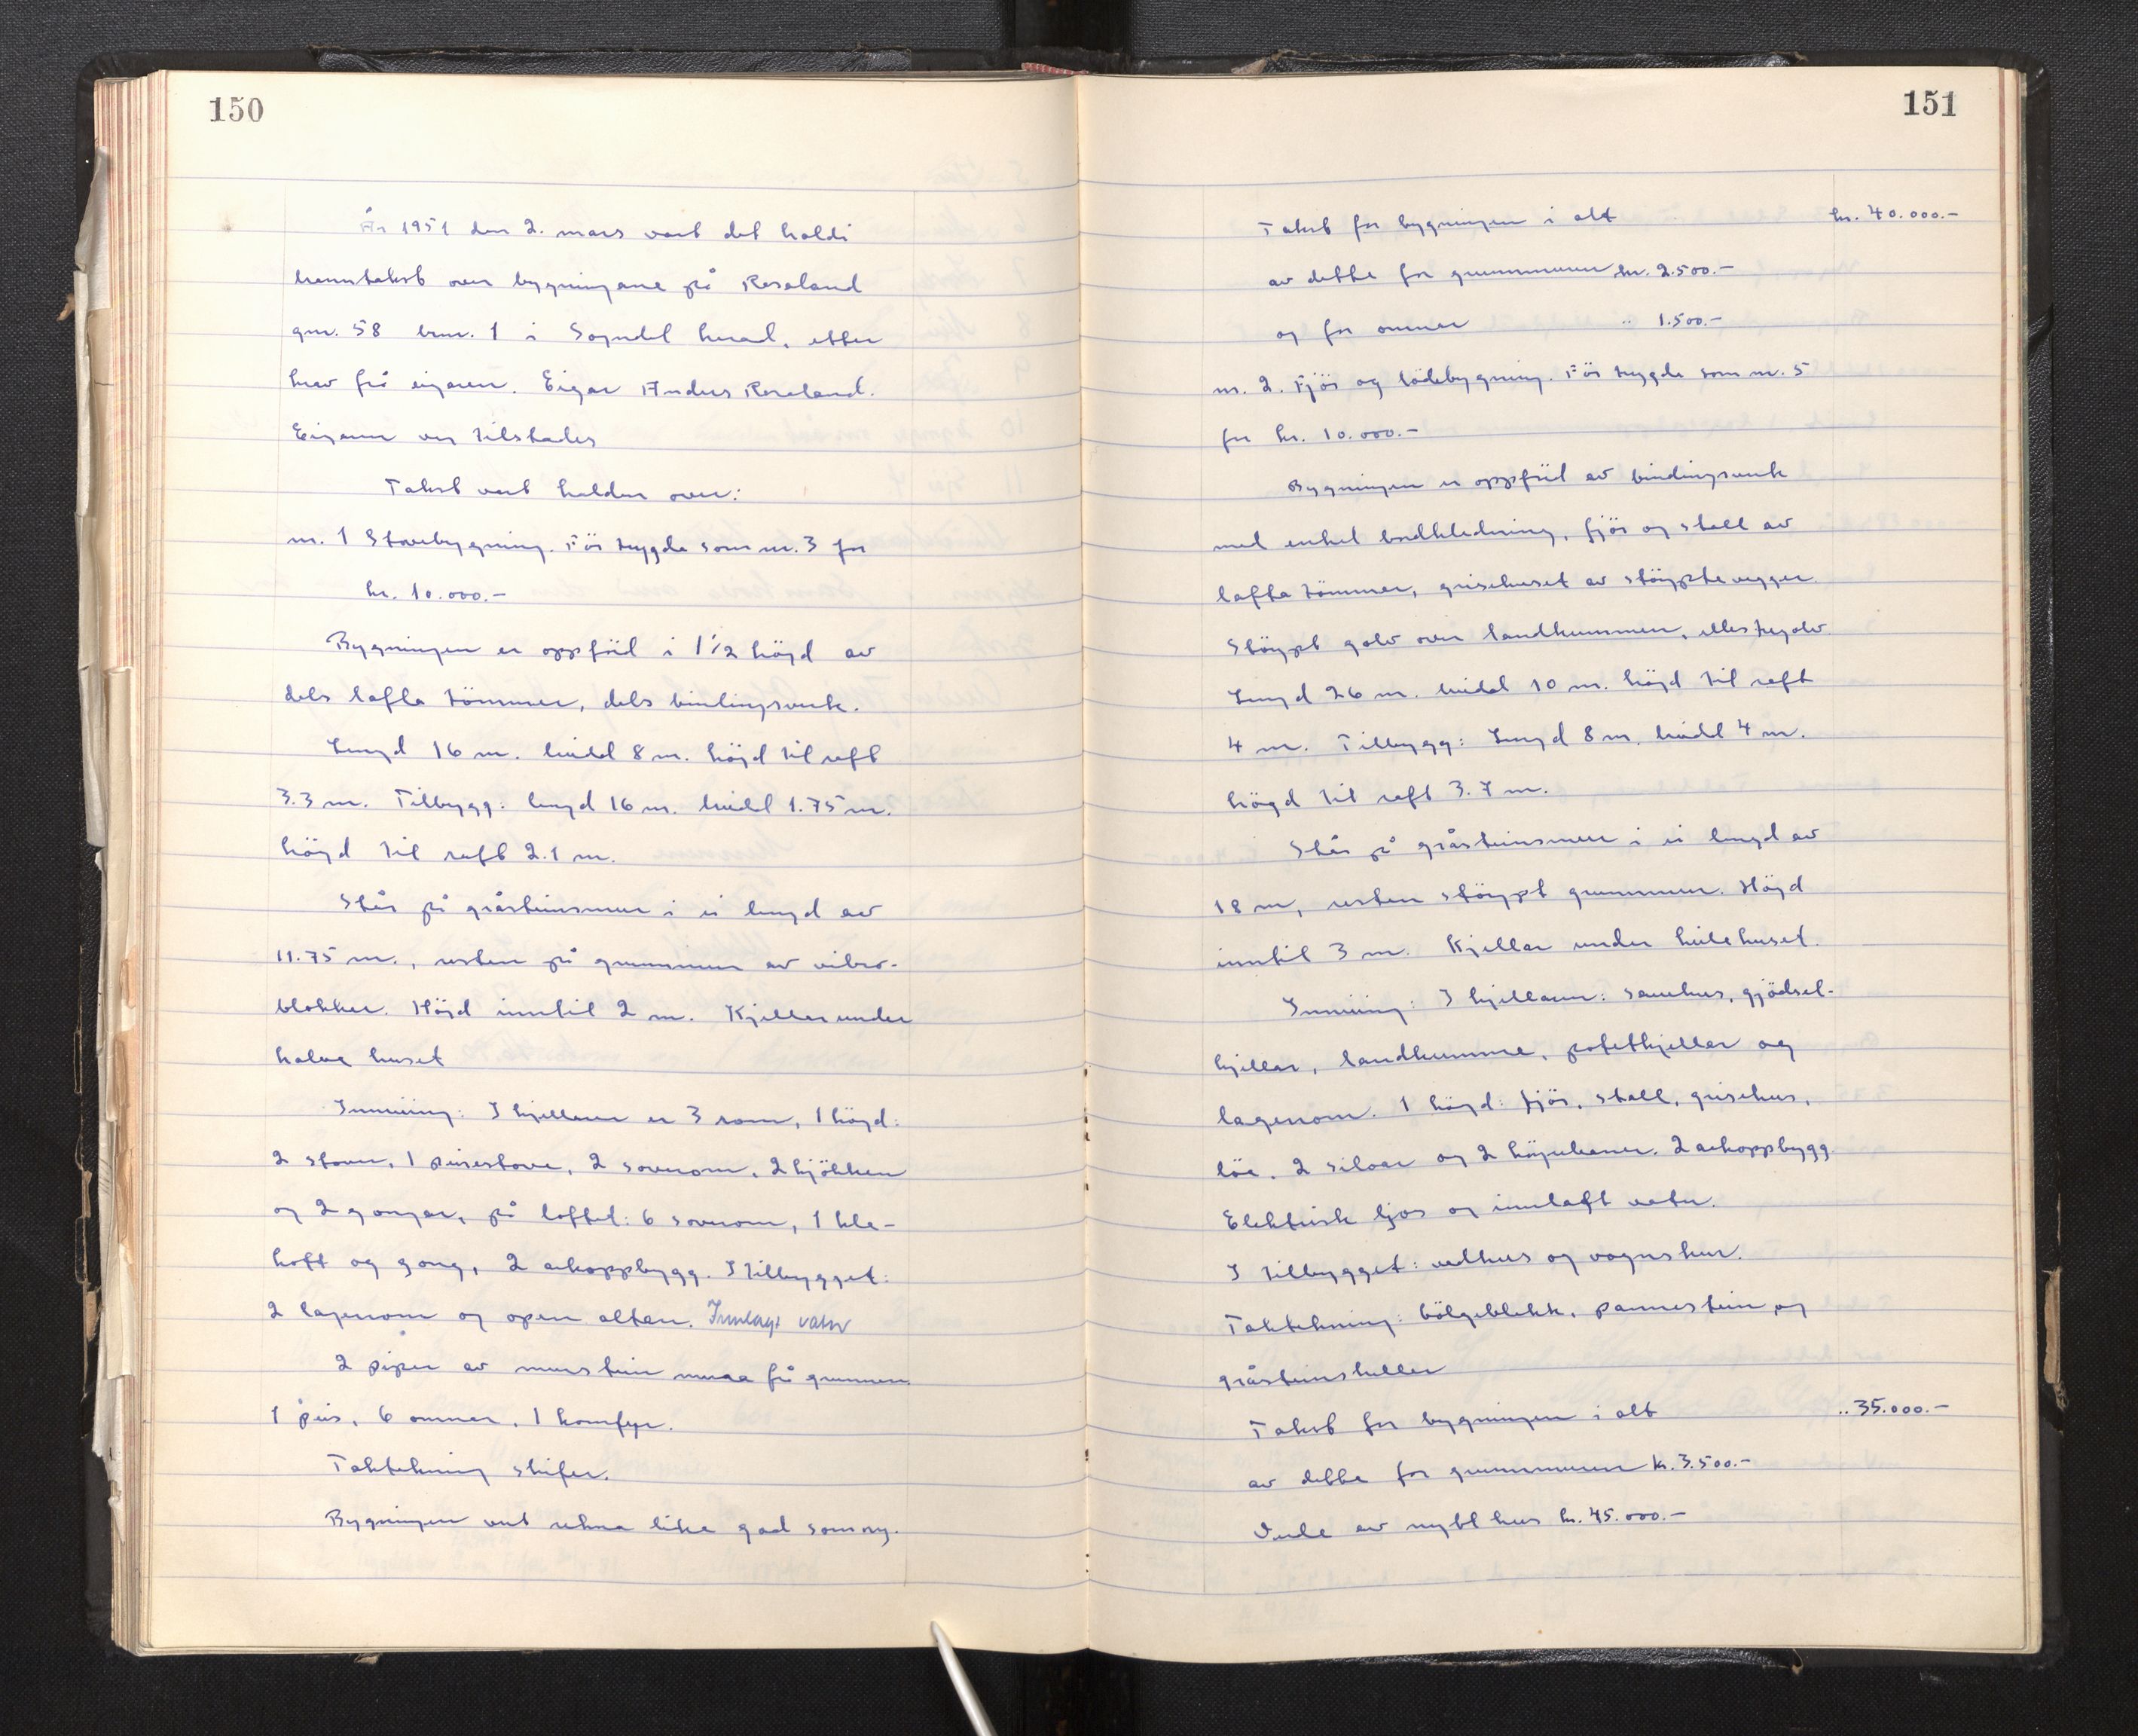 150
År 1951 den 2. mars vart det haldi
branntakst over bygningane på Roseland
gnr. 58 bnr. 1 i Sogndal herad, etter
krav frå eigaren. Eigar Anders Roseland.
Eigaren var tilstades
Takst vart halden over:
nr. 1 Stovebygning. Før trygda som nr. 3 for
kr. 10.000.-
Bygningen er oppförd i 1 1/2 högd av
dels lafta tömmer, dels bindingsverk.
Lengd 16 m. bredd 8 m. högd til raft
3.3 m. Tilbygg: lengd 16 m. bredd 1.75 m.
högd til raft 2.1 m.
Står på gråsteinsmur i ei lengd av
11.75 m., resten på grunnmur av vibro-
blokker. Högd inntil 2 m. Kjeller under
halve huset
Innreiing: I kjelleren er 3 rom, 1 högd:
2 stover, 1 peisestove, 2 soverom, 2 kjökken
og 2 gongar, på loftet: 6 soverom, 1 kle-
kott og gong, 2 arkoppbygg. I tilbygget:
2 lagerrom og open altan. Innlagt vatn
2 piper av murstein mura frå grunnen
1 peis, 6 omner, 1 komfyr.
Taktekning skifer.
Bygningen vert rekna like god som ny.
151
Takst for bygningen i alt kr. 40.000.-
av dette for grunnmuren kr. 2.500.-
og for omner " 1.500.-
nr. 2. Fjös og lödebygning. Før trygda som nr. 5
for kr. 10.000.-
Bygningen er oppförd av bindingsverk
med enkel bordkledning, fjös og stall av
lafta tömmer, grisehuset av stöypte vegger
Stöypt golv over landkummen, elles tregolv
Lengd 26 m. bredd 10 m. högd til raft
4 m. Tilbygg: Lengd 8 m. bredd 4 m.
högd til raft 3.7 m.
Står på gråsteinsmur i ei lengd av
18 m, resten stöypt grunnmur. Högd
inntil 3 m. Kjellar under heile huset.
Innreiing: I kjellaren: sauehus, gjödsel-
kjellar, landkumme, potetkjellar og
lagerrom. 1 högd: fjös, stall, grisehus,
löe, 2 siloar og 2 . 2 arkoppbygg.
Elektrisk ljos og innlagt vatn.
I tilbygget: vedhus og vognskur.
Taktekning: bölgeblekk, pannestein og
gråsteinsheller
Takst for bygningen i alt .. 35.000.-
av dette for grunnmuren kr. 3.500.-
Verde av nytt hus kr. 45.000.-